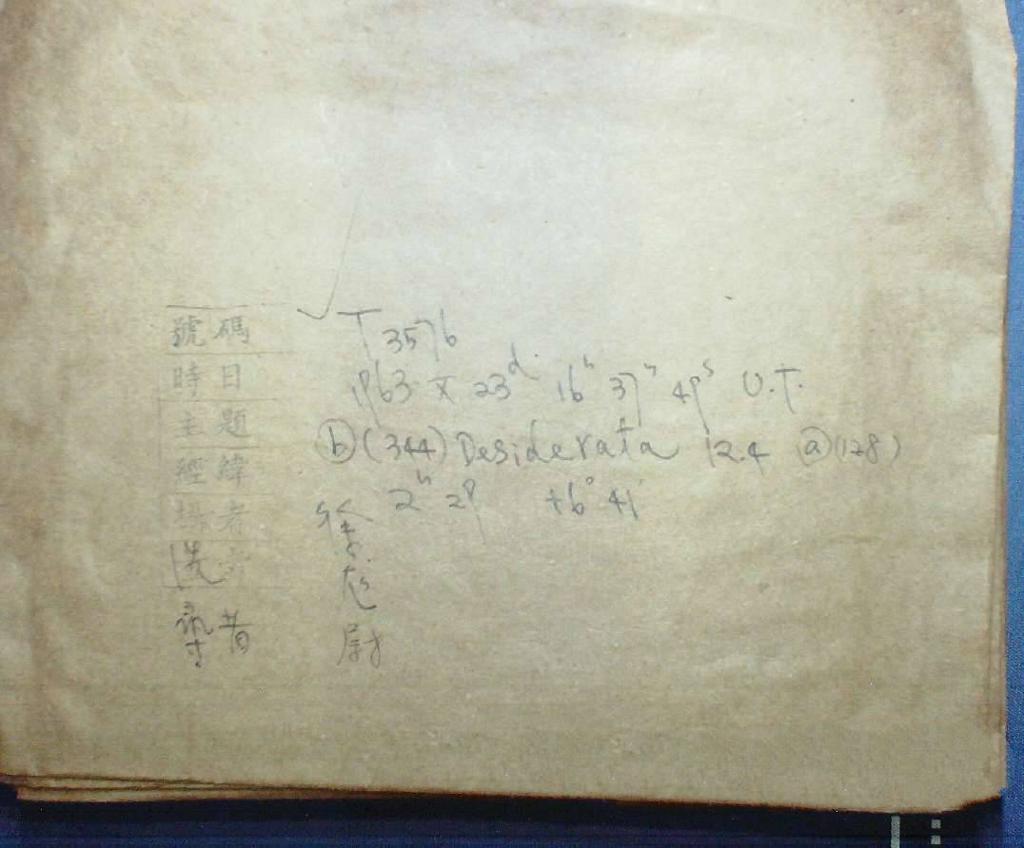 號碼 T 3576
時日 1963 X 23d 16h 37m 49s U.T.
主題 ⓑ(344) Desiderata 12.4 ⓐ(128)
經緯 2h 29 +6° 41'
攝者 徐
洗者
尋者 尉